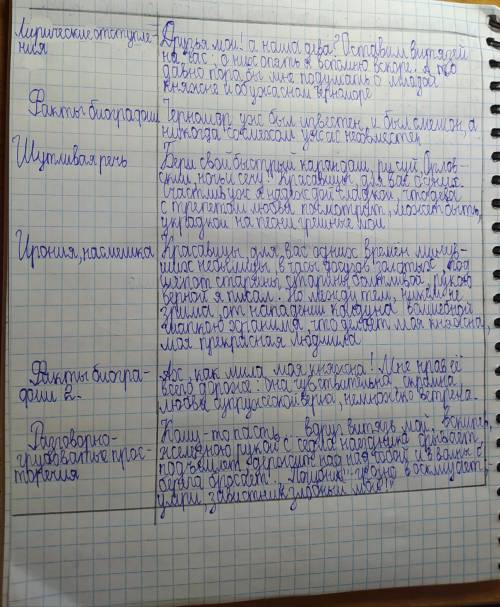 Лирические отступле-
ния
Друзья мои! а наша дева? Оставим витязей
на час, о них опять я вспомню вскоре. А то
давно пора бы мне подумать о младой
княжне и об ужасном Черноморе
Факты биографии
Черномор уж был известен, и был смешон, а
никогда со смехом ужас несовместен
Шутливая речь
Бери свой быстрый карандаш, рисуй, Орлов-
ский, ночь и сечу! Красавицы, для вас одних
счастлив уж я надеждой сладкой, что дева
с трепетом любви посмотрит, может быть,
украдкой на песни грешные мои
Ирония, насмешка
Красавицы, для вас одних времен минув-
ших небылицы, в часы досугов золотых, под
шепот старины болтливой, рукою
верной я писал. Но между тем, никем не
зрима, от нападений колдуна волшебной
шапкою хранима, что делает моя княжна,
моя прекрасная Людмила
Факты биогра-
фии 2.
Ах, как мила моя княжна! Мне нрав её
всего дороже: она чувствительна, скромна
любви супружеской верна, немножко ветрена.
Разговорно-
грубоватые прос-
торечия
вдруг витязь мой, вскипев,
железною рукой с седла наездника срывает
подъемлет, держит над собой и в волны с
берега бросает. "Погибни! - грозно восклицает;
умри, завистник злобный мой!"